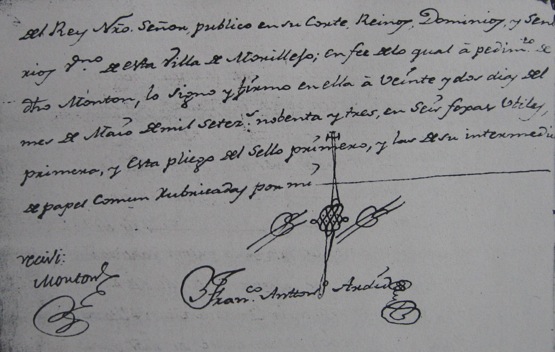 del Rey Nro. Señor, publico en su Corte, Reinos, Dominios, y Señ
rios vno. de esta Villa de Morillejo; en fee de lo qual à pedimto. de
dho Monton, lo signo y firmo en ella à Veinte y dos dias del
mes de Maio de mil setezs. nobenta y tres, en Seis foxas Utiles,
primera, y esta pliego del Sello primero, y las de su intermedio
de papel Comun Rubricadas por mi
recivi:
Monton
Franco. Antton